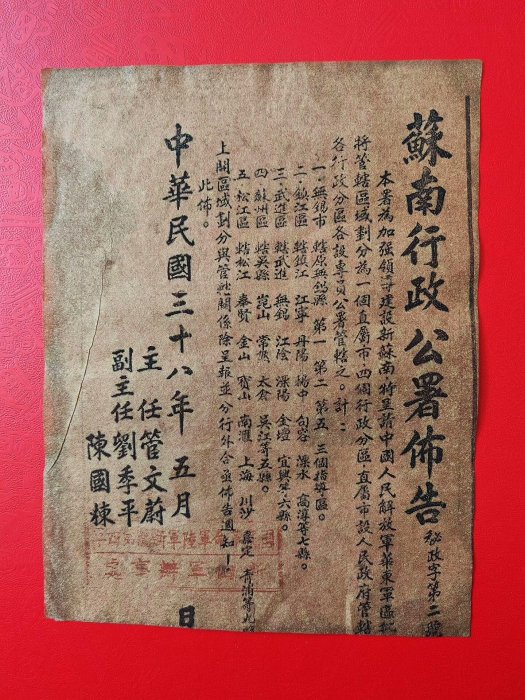 蘇南行政公署佈告 秘政字第二號
本署為加强領導建設新蘇南特呈請中國人民解放軍華東軍區批
將管轄區域劃分為一個直屬市四個行政分區直屬市設人民政府管轄
各行政分區各設專員公署管轄之。計：
一、無錫市 轄原無錫縣 第一 第二 第五 三個指導區。
二、鎮江區 轄鎮江 江寧 丹陽 揚中 句容 溧水 高淳等七縣。
三、武進區 轄武進 無錫 江陰 溧陽 金壇 宜興等六縣。
四、蘇州區 轄吳縣 崑山 常熟 太倉 吳江等五縣。
五、松江區 轄松江 奉賢 金山 寶山 南滙 上海 川沙 嘉定 青浦等九縣
上開區域劃分與管轄關係除呈報並分行外合亟佈告週知！
此佈。
中華民國三十八年五月 日
主任管文蔚
副主任劉季平
陳國棟